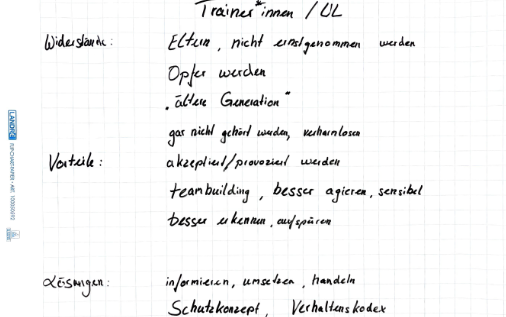 Trainer*innen / ÜL
Widerstände: Eltern, nicht ernstgenommen werden
Opfer werden
"ältere Generation"
gar nicht gehört werden, verharmlosen
Vorteile: akzeptiert/provoziert werden
teambuilding, besser agieren, sensibel
besser erkennen, aufspüren
Lösungen: informieren, umsetzen, handeln
Schutzkonzept, Verhaltenskodex
LANDRÉ